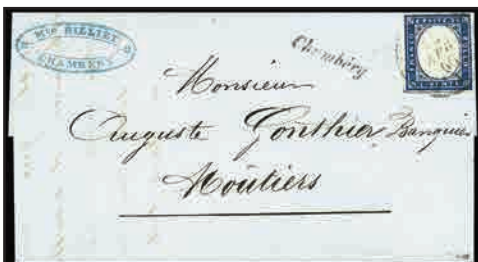 BILLIET
CHAMBERY
Chambéry
Monsieur
Auguste Gonthier Banquier
Moûtiers